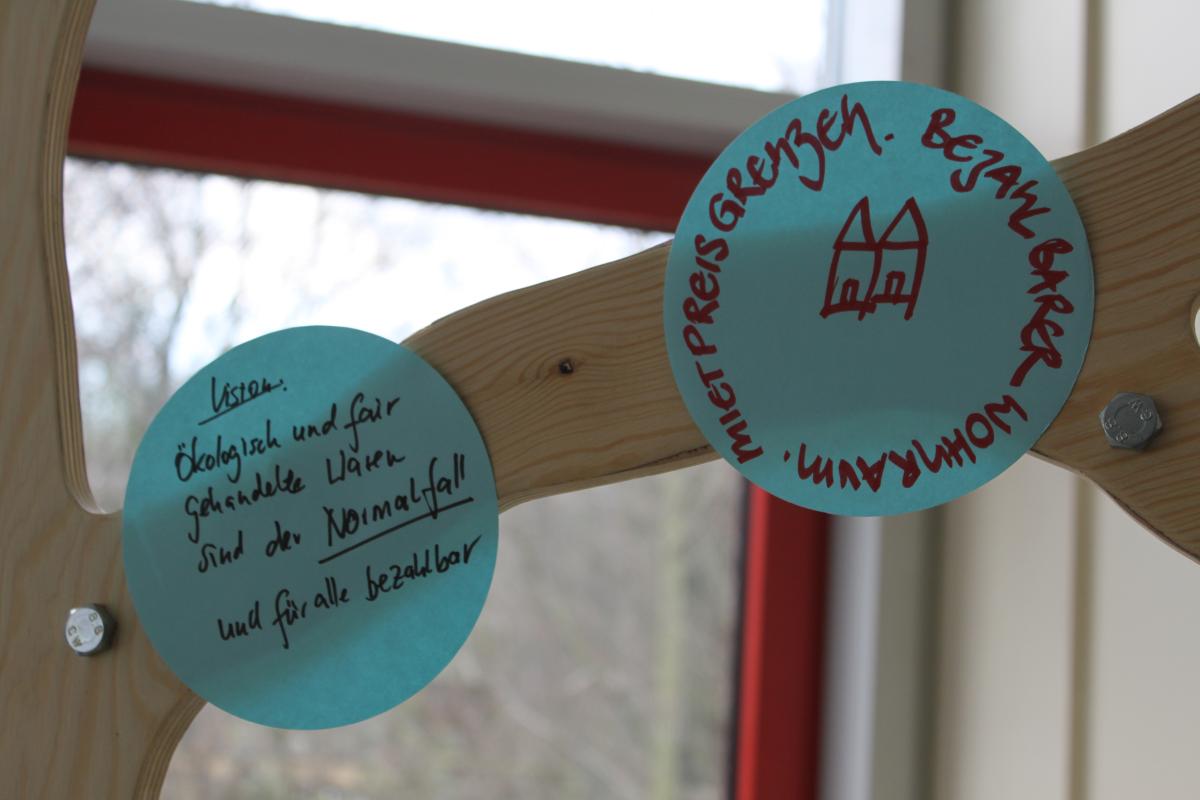 Vision.
Ökologisch und fair
gehandelte Waren
sind der Normalfall
und für alle bezahlbar
BEZAHLBARER WOHNRAUM. MIETPREISGRENZEN.